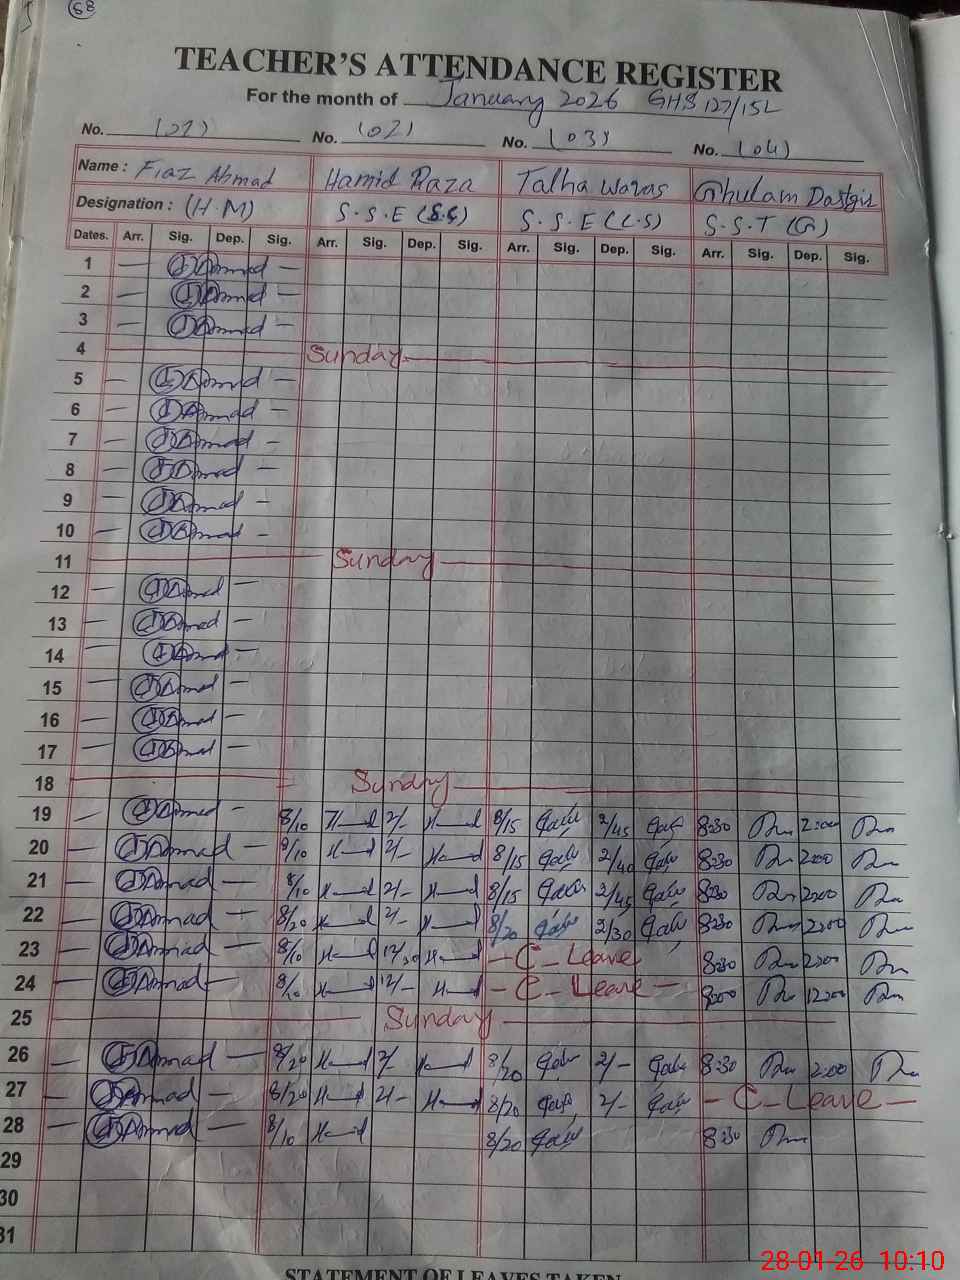 68
TEACHER'S ATTENDANCE REGISTER
For the month of January 2026 GHS 127/15L
No. (01) No. (02) No. (03) No. (04)
Name : Fiaz Ahmad Hamid Raza Talha Waras Ghulam Dastgir
Designation : (H.M) S.S.E (S.C) S.S.E (L.S) S.S.T (G)
Dates. Arr. Sig. Dep. Sig. Arr. Sig. Dep. Sig. Arr. Sig. Dep. Sig. Arr. Sig. Dep. Sig.
1 — Ahmad —
2 — Ahmad —
3 — Ahmad —
4 Sunday
5 — Ahmad —
6 — Ahmad —
7 — Ahmad —
8 — Ahmad —
9 — Ahmad —
10 — Ahmad —
11 Sunday
12 — Ahmad —
13 — Ahmad —
14 — Ahmad —
15 — Ahmad —
16 — Ahmad —
17 — Ahmad —
18 Sunday
19 — Ahmad — 8/10 2/- 8/15 2/45 8:30 2:00
20 — Ahmad — 8/10 2/- 8/15 2/40 8:30 2:00
21 — Ahmad — 8/10 2/- 8/15 2/45 8:30 2:00
22 — Ahmad — 8/20 2/- 8/20 2/30 8:30 2:00
23 — Ahmad — 8/10 12/30 — C - Leave 8:30 2:00
24 — Ahmad — 8/20 12/- — C - Leave — 8:00 12:00
25 Sunday
26 — Ahmad — 8/20 2/- 8/20 2/- 8:30 2:00
27 — Ahmad — 8/20 2/- 8/20 2/- — C - Leave —
28 — Ahmad — 8/10 8/20 8:30
29
30
31
STATEMENT OF LEAVES TAKEN
28-01-26 10:10